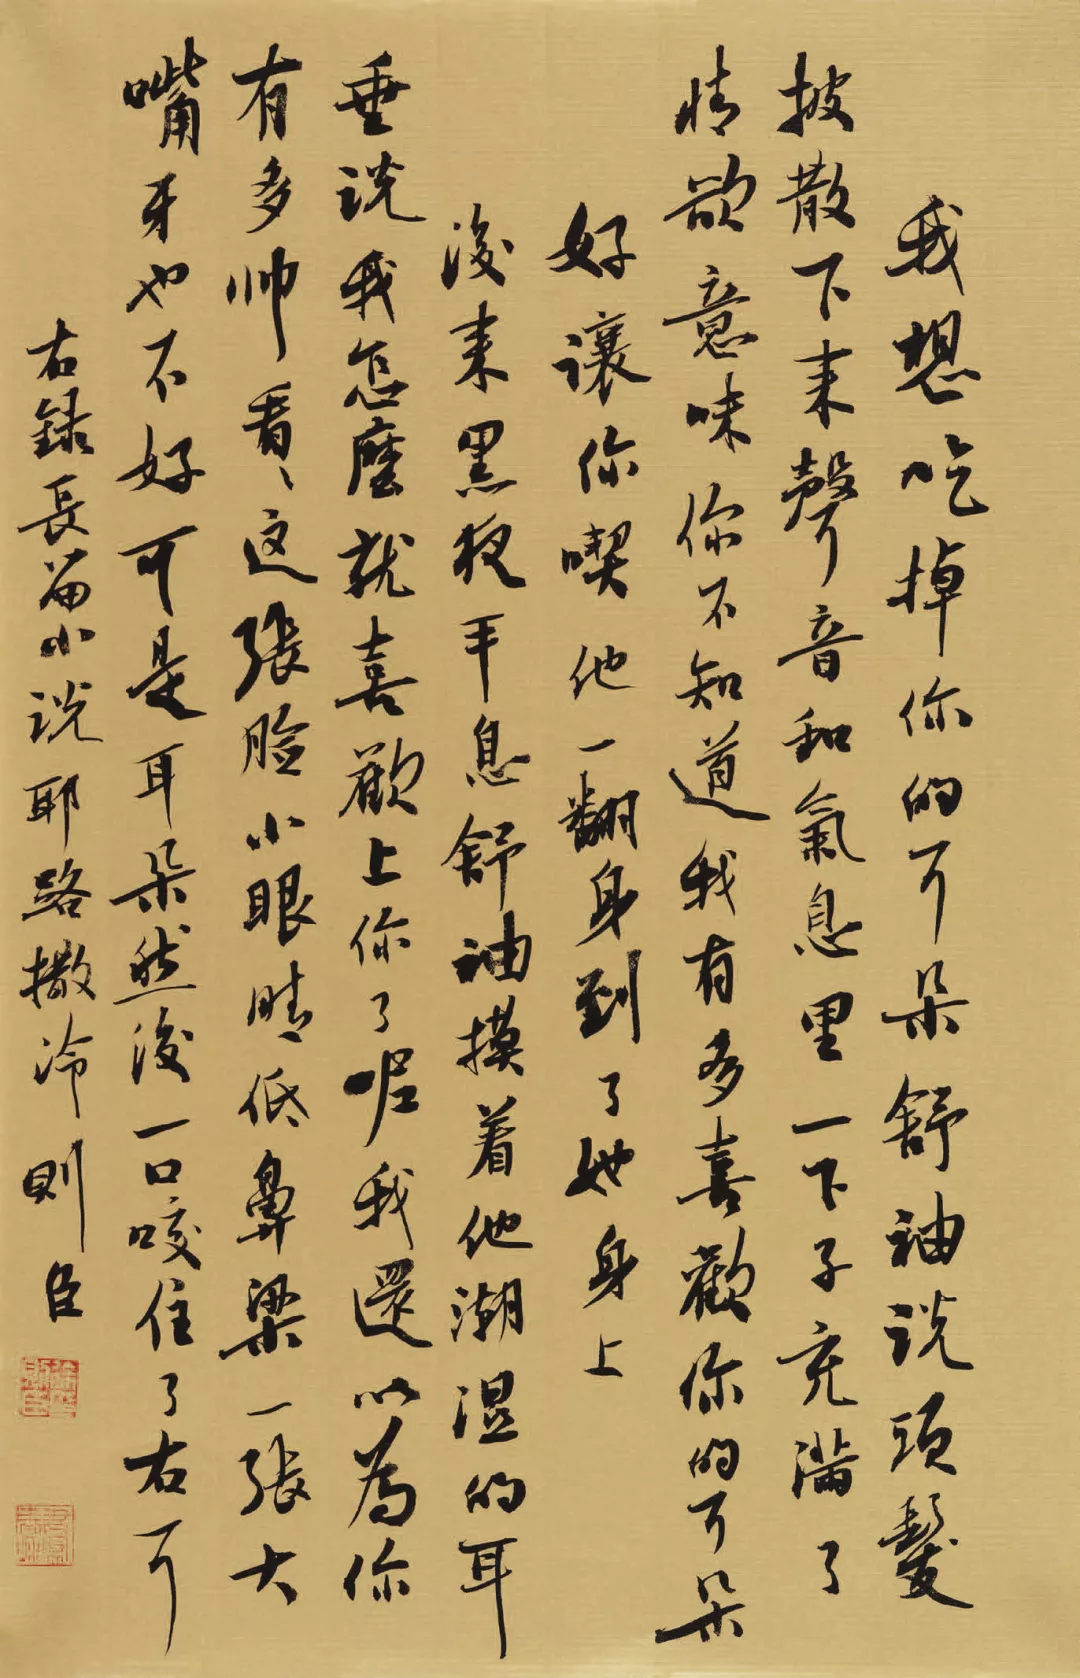 我想吃掉你的耳朵舒袖说頭髮
披散下来聲音和氣息里一下子充滿了
情欲意味你不知道我有多喜歡你的耳朵
好讓你喫他一翻身到了她身上
後来黑夜平息舒袖摸着他潮湿的耳
垂说我怎麽就喜歡上你了呢我還以為你
有多帅看々这張脸小眼睛低鼻梁一張大
嘴牙也不好可是耳朵然後一口咬住了右耳
右録長篇小说耶路撒冷则臣